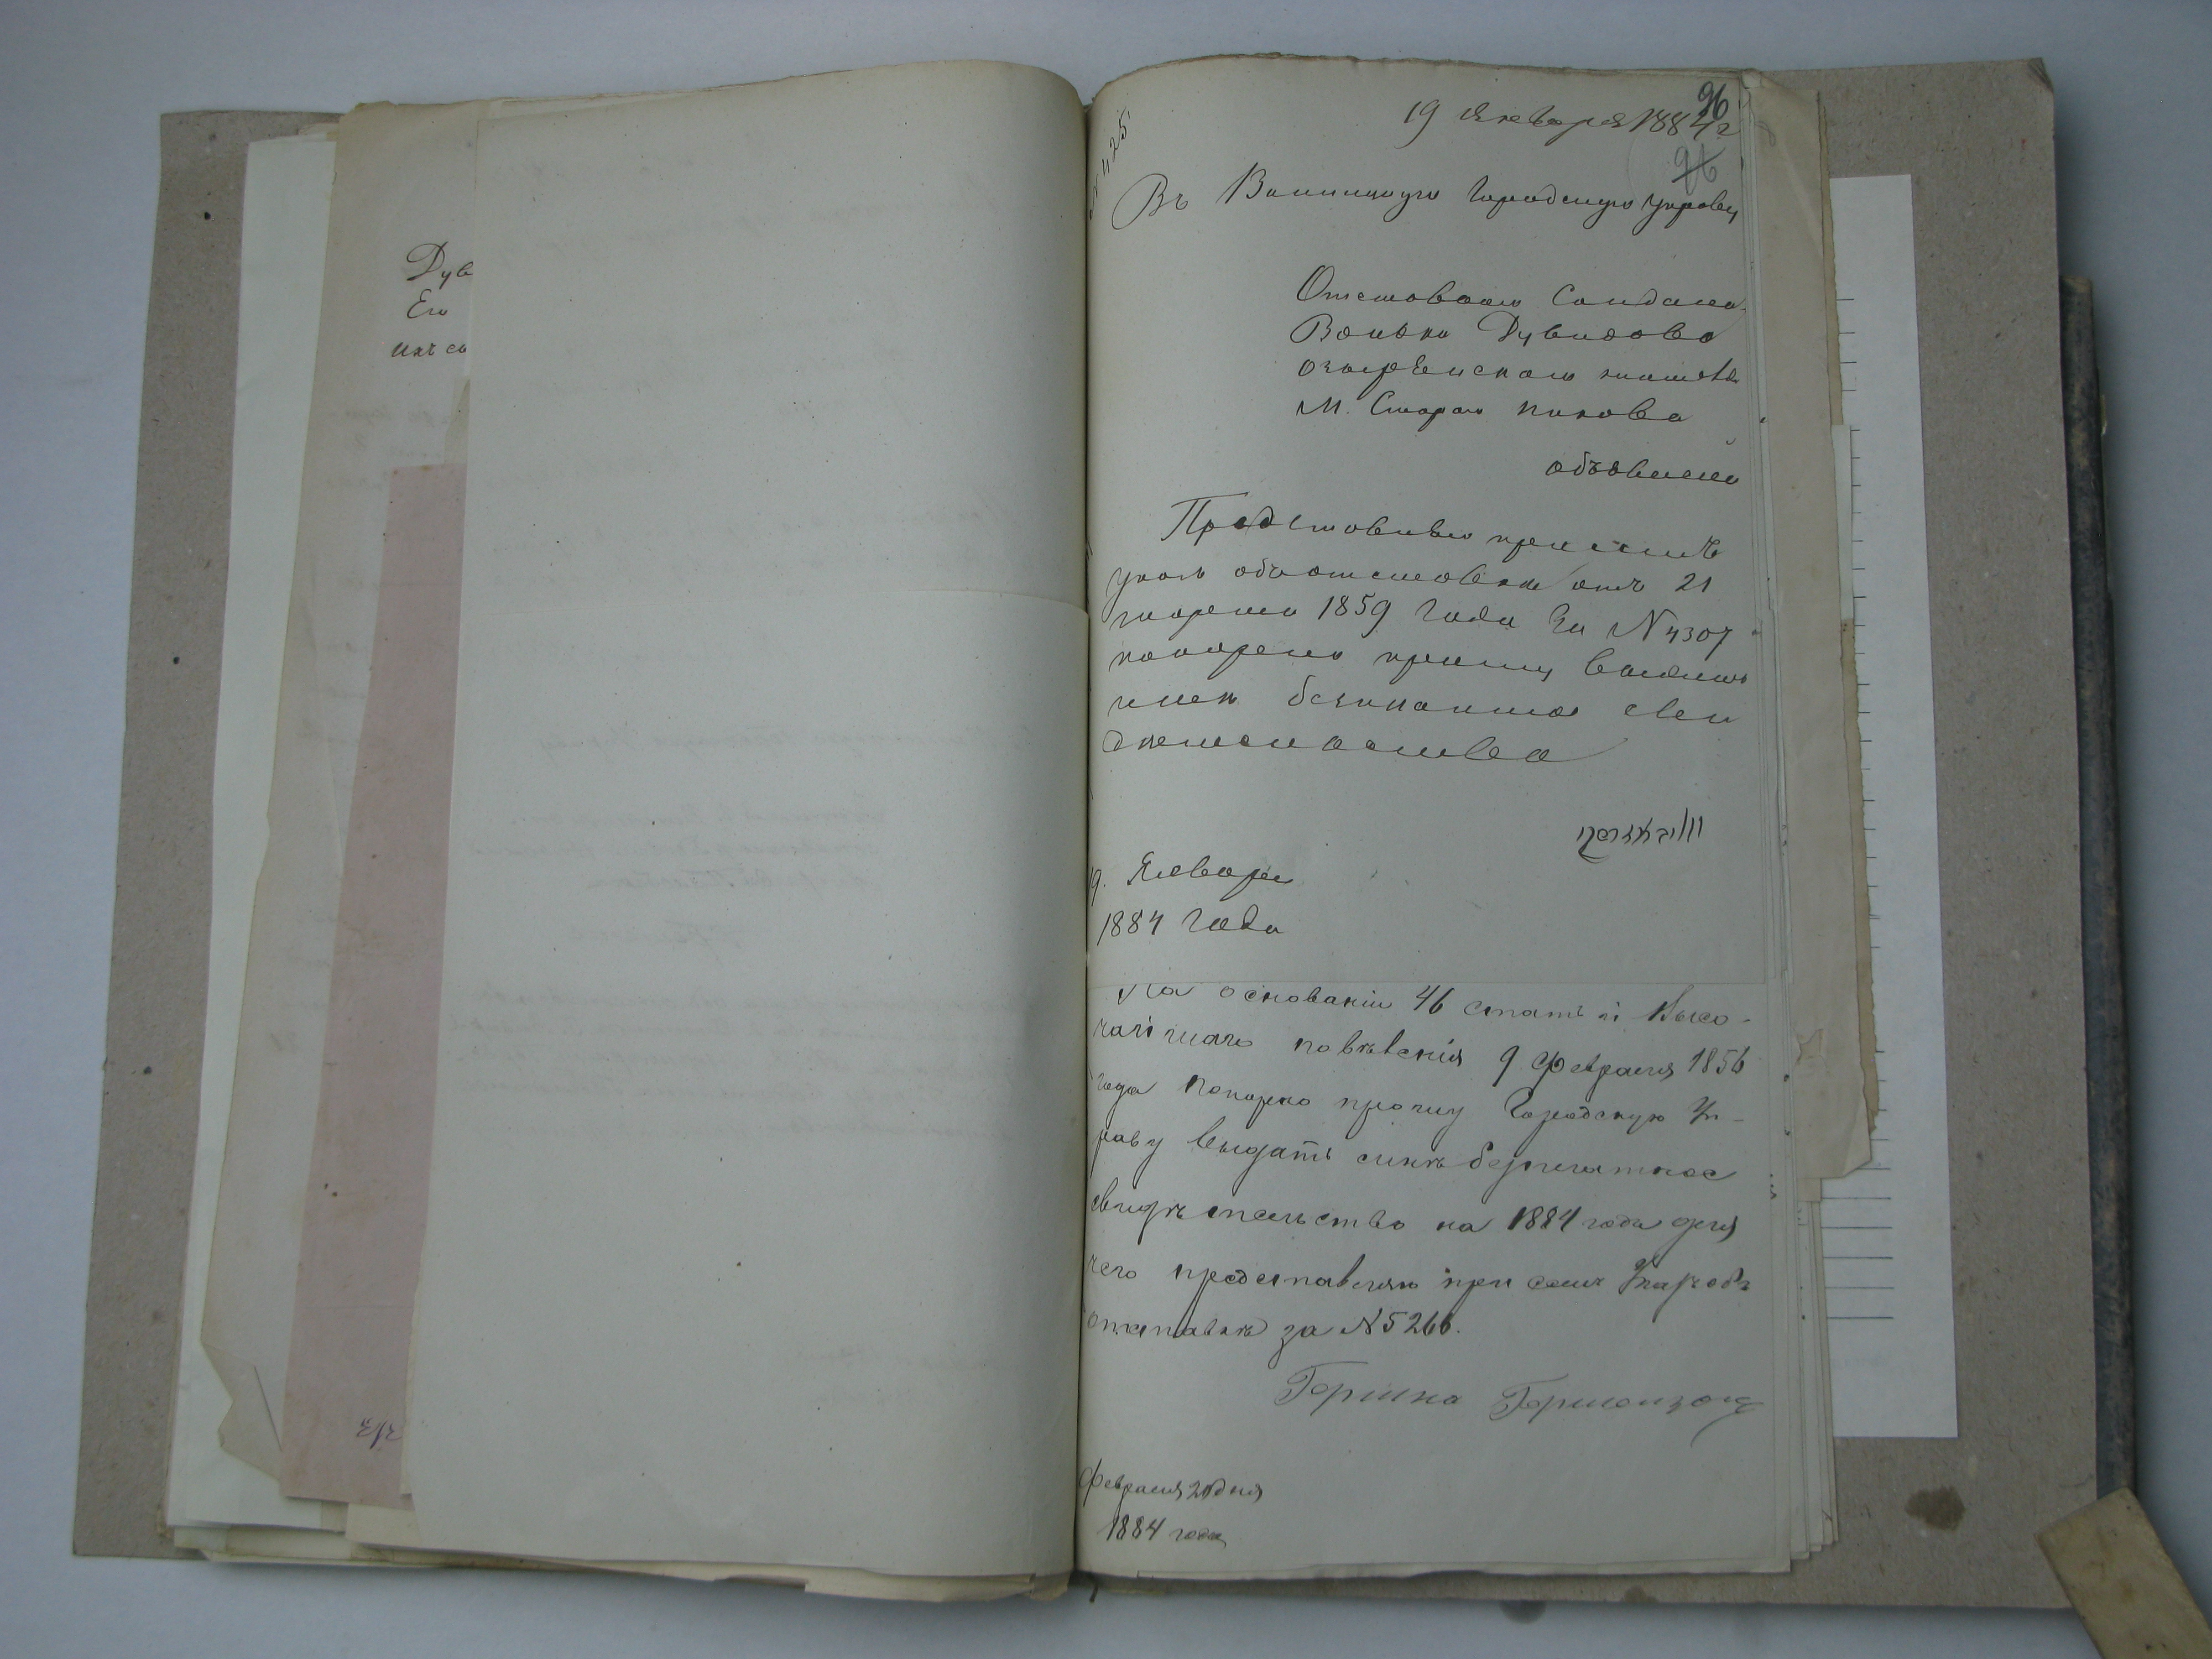 Дув
Его
ихъ со
№ 425.
19 Января 1884 г
96
96
Въ Винницкую Городскую Управу
Отставного Солдата
Волько Дувидова
жителя
М. Старого Пикова
объявленіе
Представивъ при семъ
указъ объ отставки отъ 21
марта 1859 года За № 4307
покорно прошу выдать
мнѣ безплатное сви
дѣтельство
19. Января
1884 года
На основаніи 46 статьи Высо-
чайшаго повѣленія 9 Февраля 1856
года покорно прошу Городскую Уп-
раву выдать мнѣ безплатное
свидѣтельство на 1884 годъ для
чего представляю при семъ указъ объ
отставкѣ за № 5266.
Гершко Гершензонъ
Февраля 20 дня
1884 года